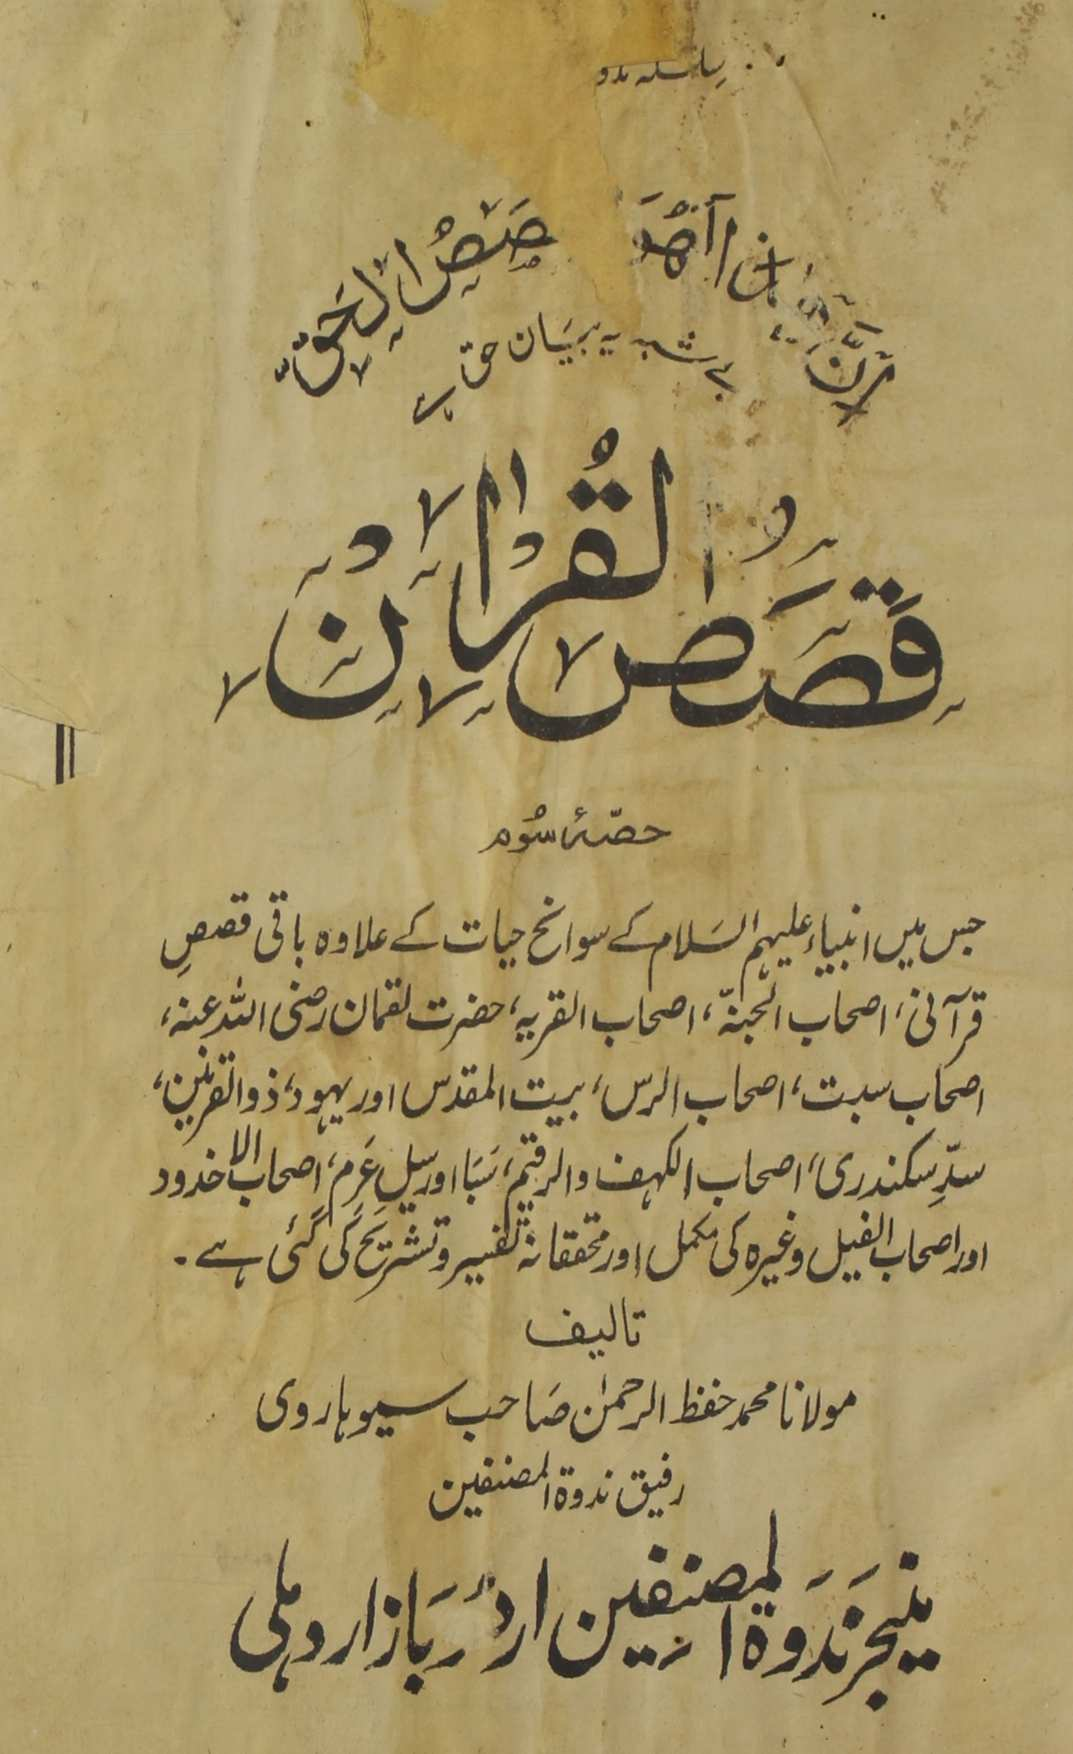 سلسلہ ندو
اِنَّ هٰذَا لَهُوَ الْقَصَصُ الْحَقُّ
بے شبہ یہ بیَان حق ہے
قَصَصُ الْقُرْاٰن
حصّۂ سُوم
جس میں انبیاء علیہم السَلام کے سوانح حیات کے علاوہ باقی قصصِ
قرآنی، اصحاب الجنہّ، اصحاب القریہ، حضرت لقمان رضی اللہ عنہ،
اصحاب سبت، اصحاب الرس، بیت المقدس اور یہود، ذوالقرنین،
سدِّ سکندری، اصحاب الکہف والرقیم، سَبَا اور سیلِ عَرِم، اصحاب الاخدود
اور اصحاب الفیل وغیرہ کی مکمل اور محققانہ تفسیر و تشریح کی گئی ہے۔
تالیف
مولانا محمد حفظ الرحمٰن صَاحب سیوہاروی
رفیق ندوۃ المصنفین
منیجر نَدوَۃ المصنفین اردُو بَازار دہلی